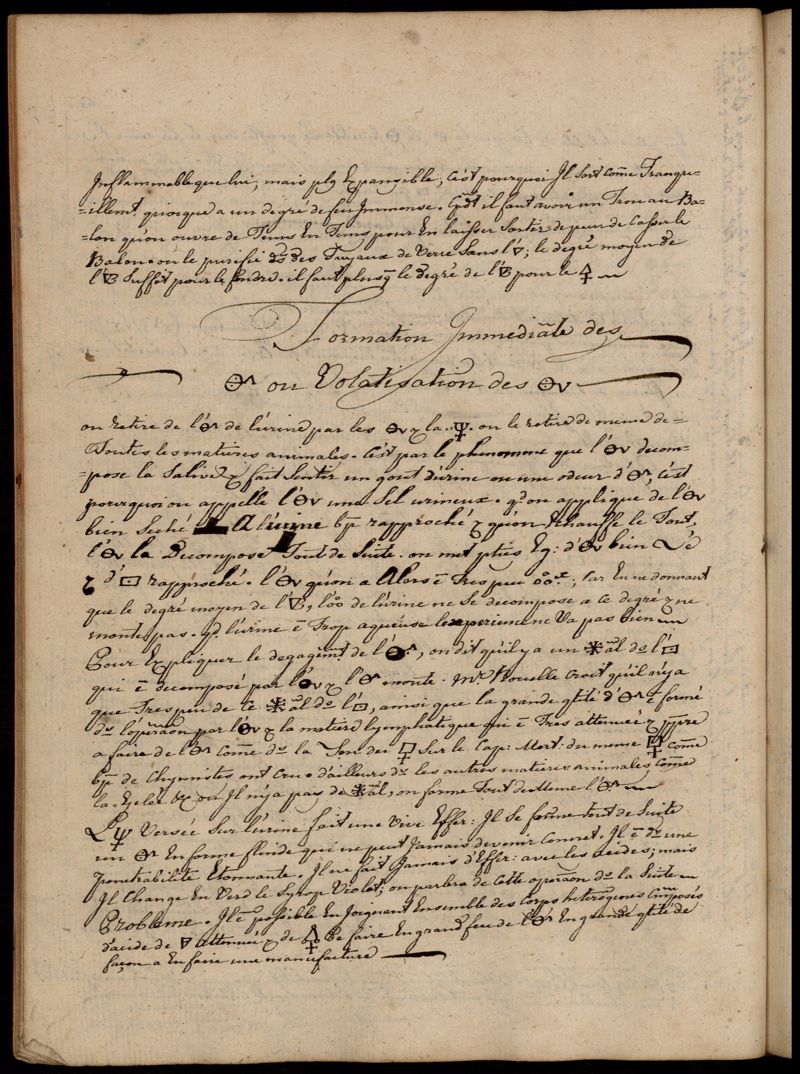 Inflammable que lui, mais plg Expansible, C'est pourquoi Jl sort come Tranqu=
=illemt. quoique a un degré de feu Immense. il faut avoir un Trou au Ba=
=lon qu'on ouvre de Tems En Tems pour En laisser Sortir de peur de Casser le
Balon. on le purifie ds. des Tuyaux de Verre Sans l'🜄; le degré moyen de
l'🜄 Suffit pour le fondre. il faut plus q le degré de l'🜄 pour le 🜍
Formation Immediate des
🜔r ou Volatisation des 🜔v
on retire de l'🜔r de l'urine par les 🜔v & la 🜍. on le retire de meme de=
=Toutes les matieres animales. C'est par le phenomene que l'🜔v decom=
=pose la Salive & fait Sentir un gout d'urine ou une odeur d'🜔r, C'est
pourquoi on appelle l'🜔v une Sel urineux. qd. on applique de l'🜔v
bien Seché A l'urine bp rapproché & qu'on Echauffe le Tout,
l'🜔v la Decompose Tout de Suite. on met plus Eg: d'🜔v bien Sé
& d'□ rapproché. l'🜔v qu'on a Alors ē Tres peu; Car En ne donnant
que le degré moyen de l'🜄, l'oo de l'urine ne Se decompose a ce degré & ne
monte pas. qd. l'urine ē Trop aqueuse l'experience ne Va pas bien
Pour Expliquer le degagemt. de l'🜔r, on dit qu'il y a un ✳al de l'□
qui ē decomposé par l'🜔v & l'🜔r monte. Mr. Rouelle Croit qu'il n'y a
que Tres peu de ce ✳al de l'□, ainsi que la grande qtité d'🜔r ē formé
ds. l'operaon par l'🜔v & la matiere lymphatique qui ē Tres attenuée & ppre
a faire de l'🜔r come ds. la Son des Sur le Cap: Mort. du meme come
bp de Chymistes ont Cru. d'ailleurs ds. les autres matieres animales, come
la Gelée &c ou Jl n'y a pas de ✳al, on forme Tout de Meme l'🜔r
Versée Sur l'urine fait une Vive Effer: Jl Se forme Tout de Suite
un 🜔r En forme fluide qui ne peut Jamais devenir Concret. Jl ē d'une
penetrabilité Etonnante. Jl ne fait Jamais d'Effer: avec les acides; mais
Jl Change En Verd le Syrop Violet; on parlera de Cette operaon ds. la Suite
Probleme. Jl ē possible En Joignant Ensemble des Corps heterogenes Composés
d'acide de 🜃 attenuée & de 🜍 De faire En grand feu de l'🜔r En grande qtité de
façon a En faire une manufacture